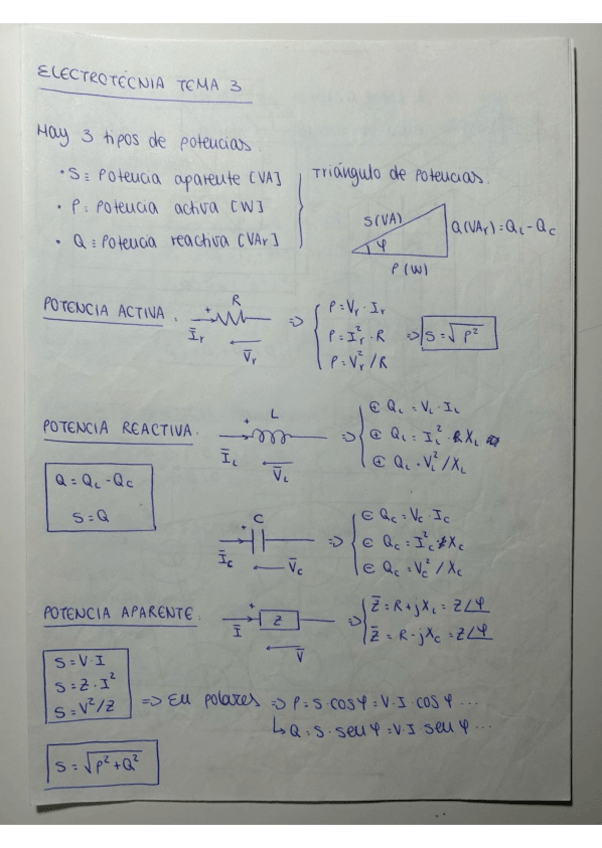 ELECTROTÉCNIA TEMA 3
Hay 3 tipos de potencias.
· S ≡ Potencia aparente [VA]
· P ≡ Potencia activa [W]
· Q ≡ Potencia reactiva [VAr]
Triángulo de potencias.
S(VA)
φ
P(W)
Q(VAr) = QL - QC
POTENCIA ACTIVA.
+ R
Īr
V̄r
=> P = Vr · Ir
P = Ir² · R => S = √P²
P = Vr² / R
POTENCIA REACTIVA.
Q = QL - QC
S = Q
+ L
ĪL
V̄L
=> ⊕ QL = VL · IL
⊕ QL = IL² · XL
⊕ QL = VL² / XL
+ C
ĪC
V̄C
=> ⊖ QC = VC · IC
⊖ QC = IC² · XC
⊖ QC = VC² / XC
POTENCIA APARENTE.
+ Z
Ī
V̄
=> Z̄ = R + jXL = Z∠φ
Z̄ = R - jXC = Z∠φ
S = V · I
S = Z · I²
S = V² / Z
=> En polares => P = S · cos φ = V · I cos φ ...
↳ Q = S · sen φ = V · I sen φ ...
S = √P² + Q²